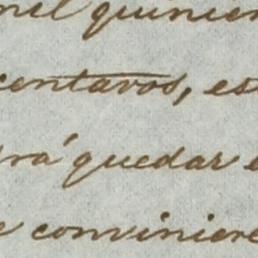 mil quinien
centavos, es
rá quedar e
e conviniere